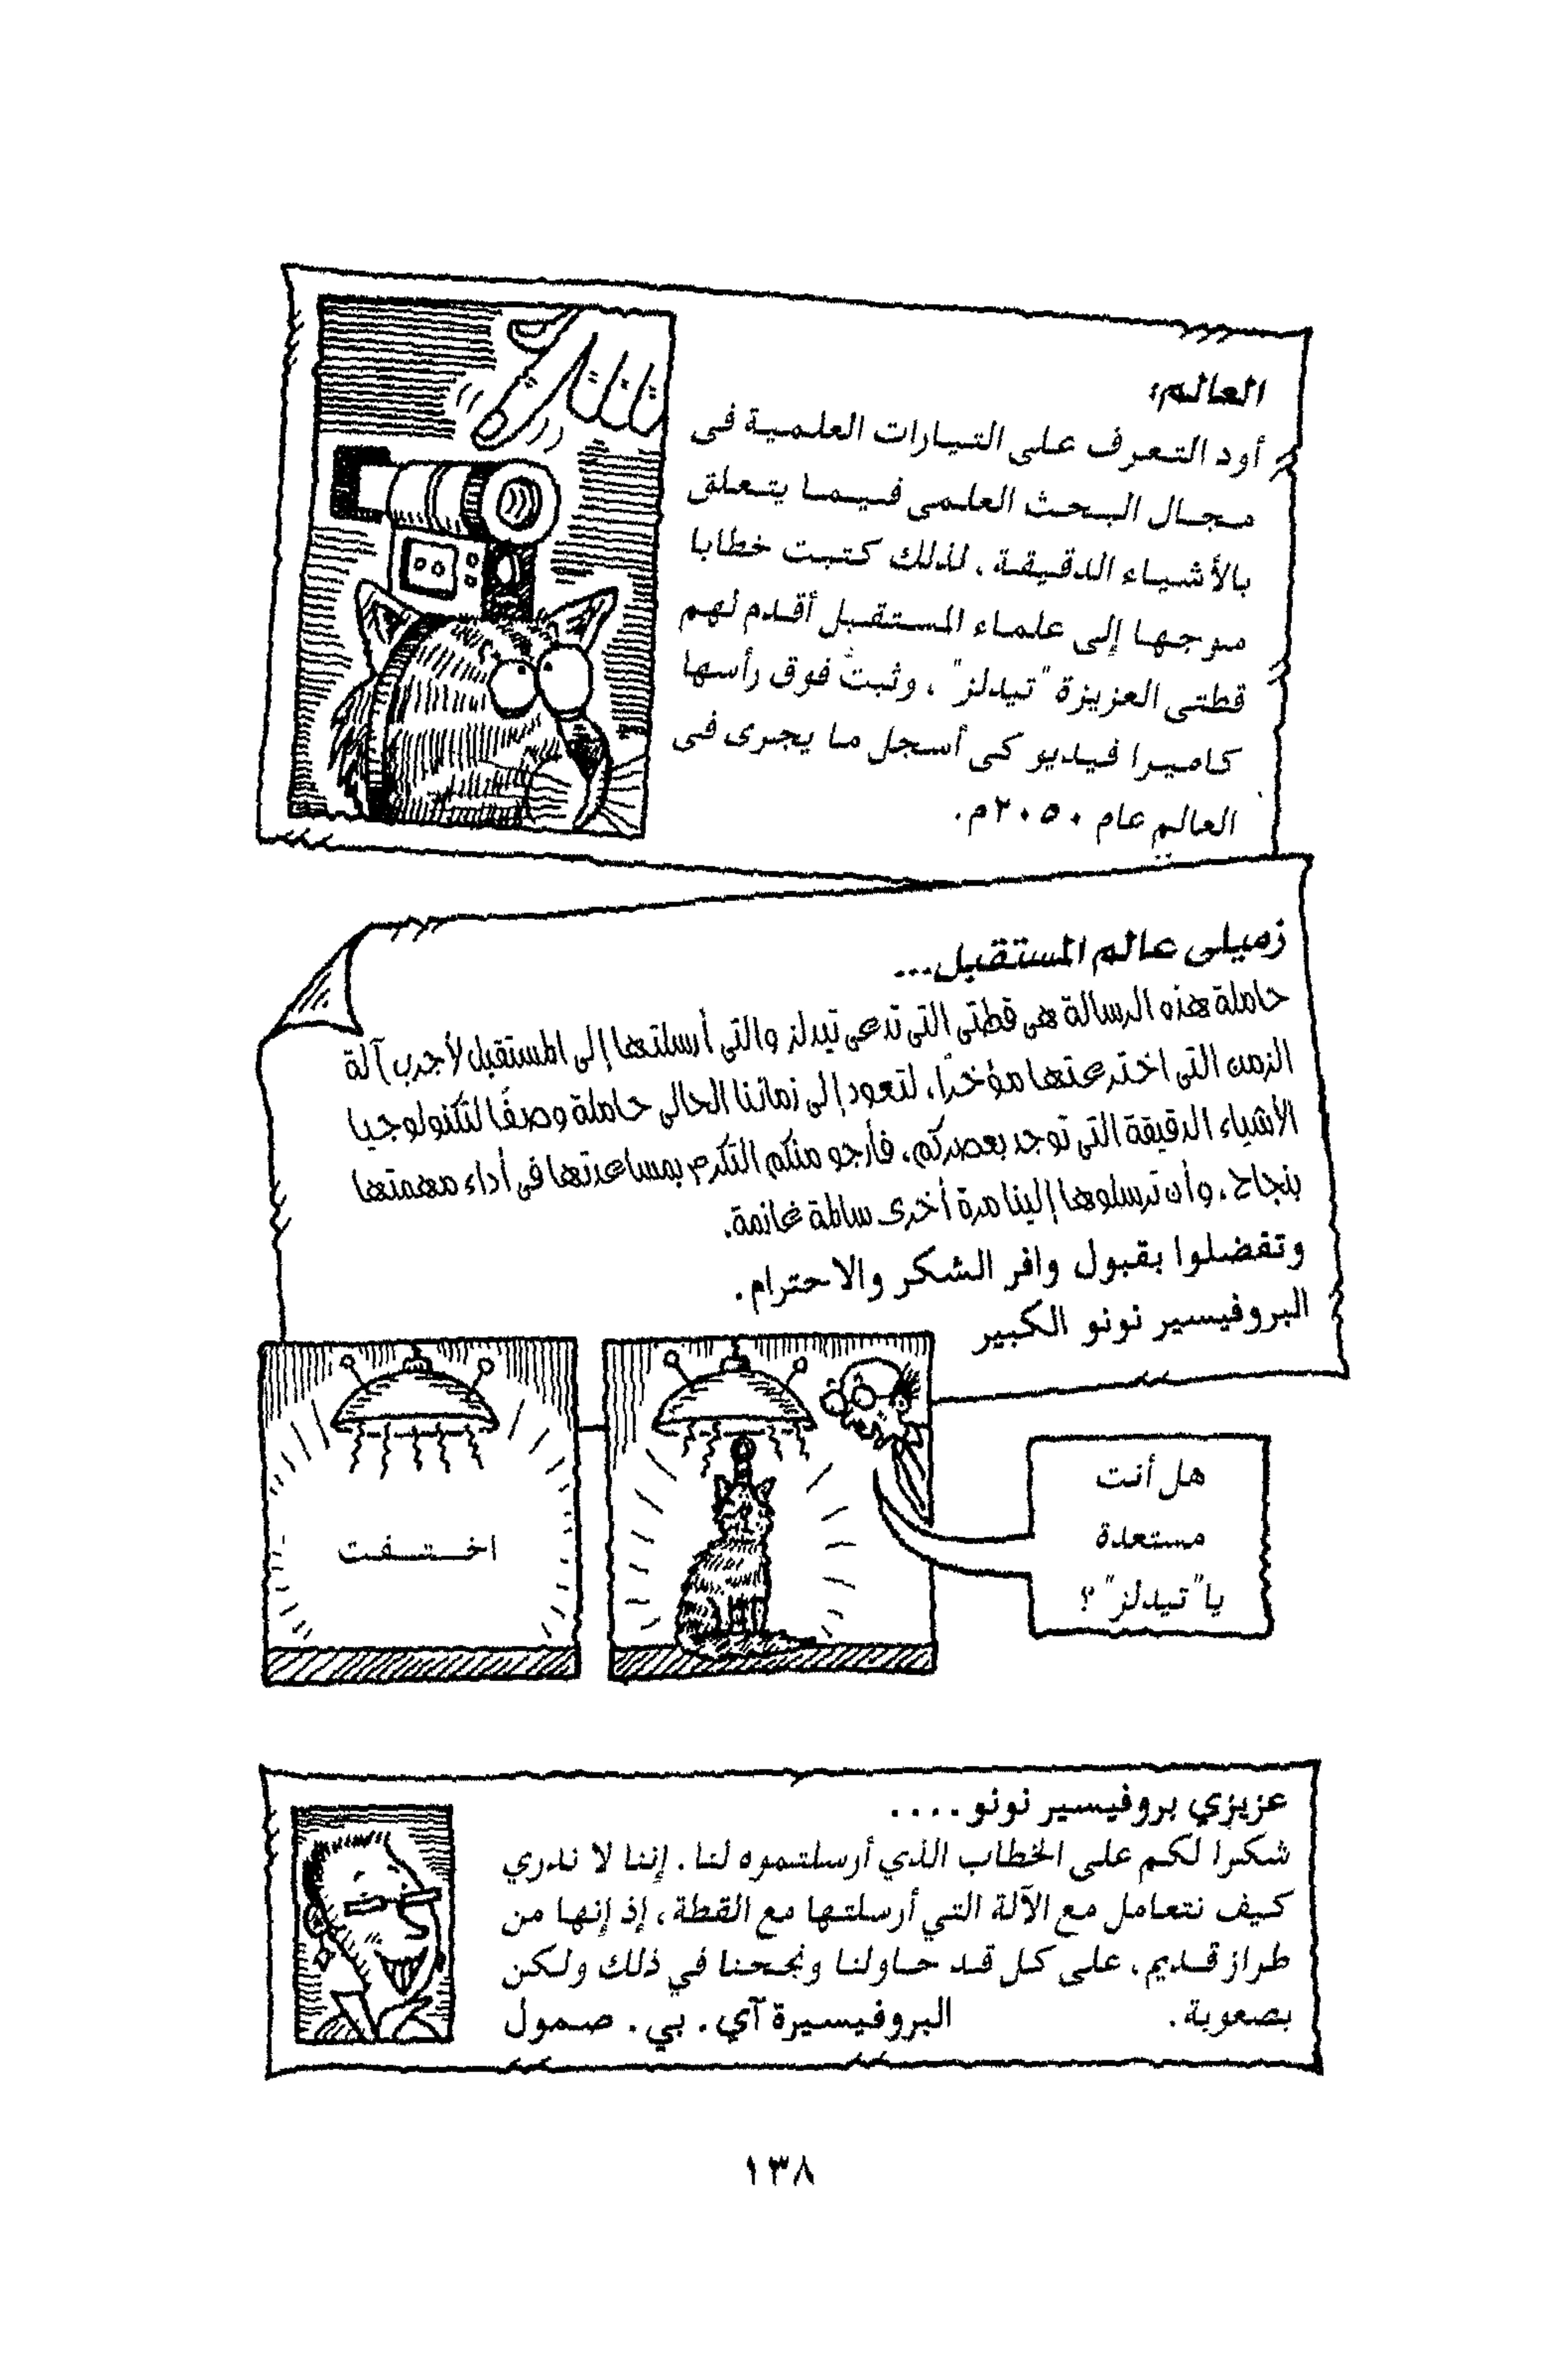 العالم:
أود التعرف على التيارات العلمية فى
مجال البحث العلمى فيما يتعلق
بالأشياء الدقيقة، لذلك كتبت خطابا
موجها إلى علماء المستقبل أقدم لهم
قطتى العزيزة "تيدلز"، وثبتُ فوق رأسها
كاميرا فيديو كى أسجل ما يجرى فى
العالم عام ٢٠٥٠م.
زميلى عالم المستقبل...
حاملة هذه الرسالة هى قطتى التى تدعى تيدلز والتى أرسلتها إلى المستقبل لأجرب آلة
الزمن التى اخترعتها مؤخرًا، لتعود إلى زماننا الحالى حاملة وصفًا لتكنولوجيا
الأشياء الدقيقة التى توجد بعصركم، فأرجو منكم التكرم بمساعدتها فى أداء مهمتها
بنجاح، وأن ترسلوها إلينا مرة أخرى سالمة غانمة.
وتفضلوا بقبول وافر الشكر والاحترام.
البروفيسير نونو الكبير
هل أنت
مستعدة
يا"تيدلز"؟
اختفت
عزيزي بروفيسير نونو....
شكرا لكم على الخطاب الذي أرسلتموه لنا. إننا لا ندري
كيف نتعامل مع الآلة التي أرسلتها مع القطة، إذ إنها من
طراز قديم، على كل قد حاولنا ونجحنا في ذلك ولكن
بصعوبة. البروفيسيرة آي. بي. صمول
١٣٨